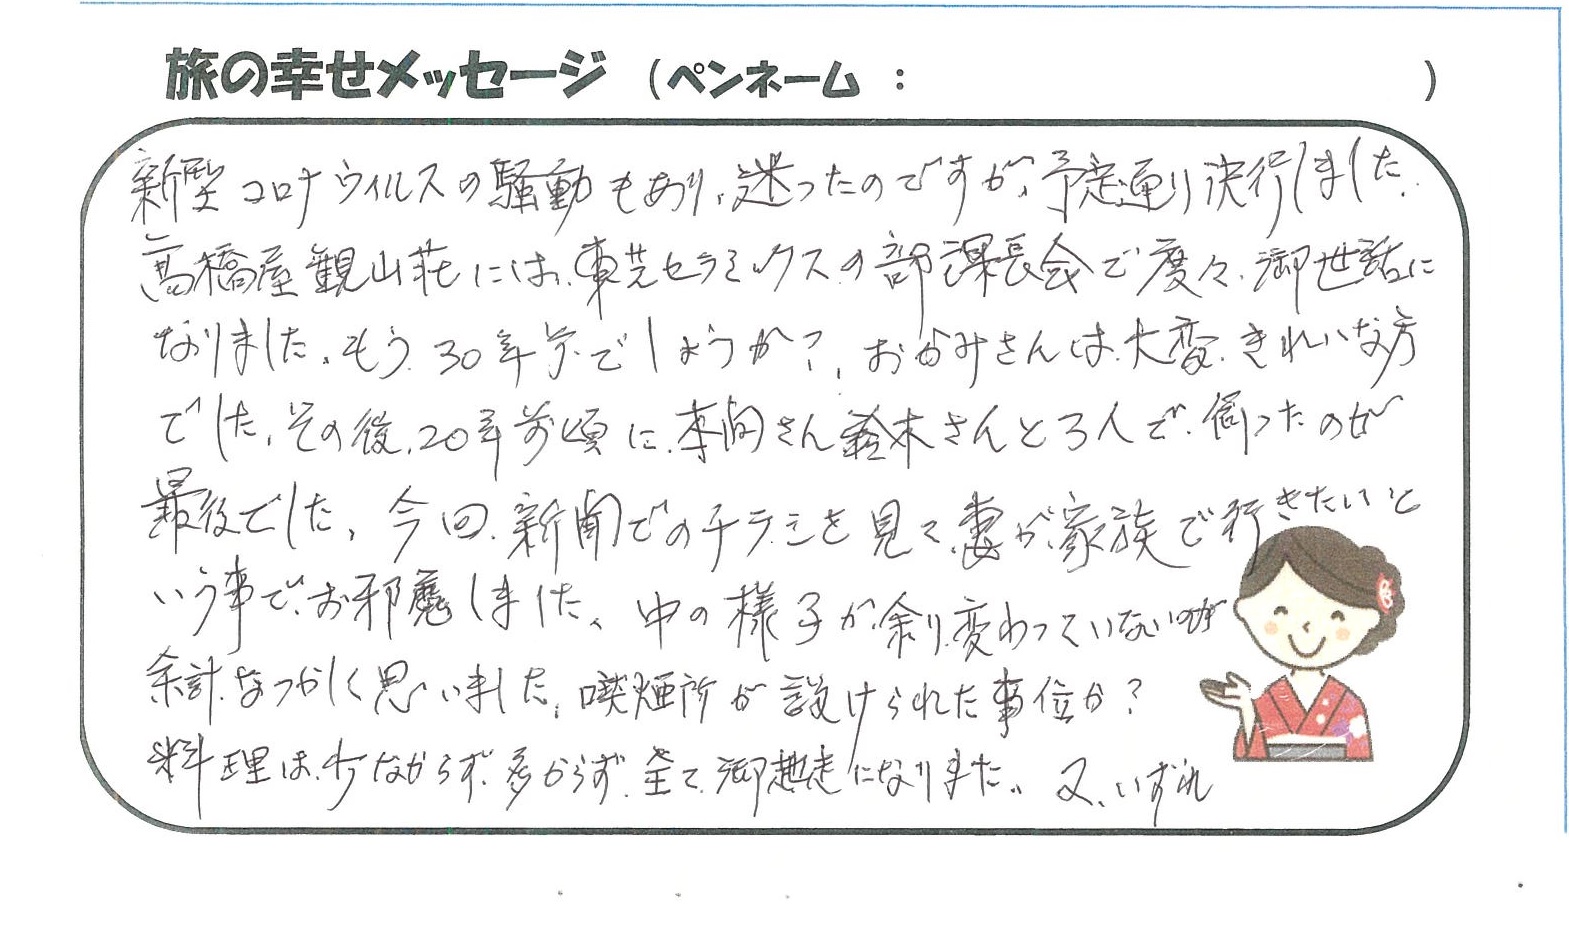 旅の幸せメッセージ （ペンネーム ： ）
新型コロナウィルスの騒動もあり、迷ったのですが、予定通り決行しました。
髙橋屋観山荘には、東芝セラミックスの部課長会で度々、御世話に
なりました。もう30年前でしょうか？、おかみさんは、大変、きれいな方
でした。その後、20年前頃に、本間さん鈴木さんと3人で、伺ったのが
最後でした。今回、新聞でのチラシを見て、妻が、家族で行きたいと
いう事で、お邪魔しました。中の様子が、余り、変わっていないのが
余計、なつかしく思いました。喫煙所が設けられた事位か？
料理は、少ながらず、多からず、全て、御馳走になりました。又、いずれ